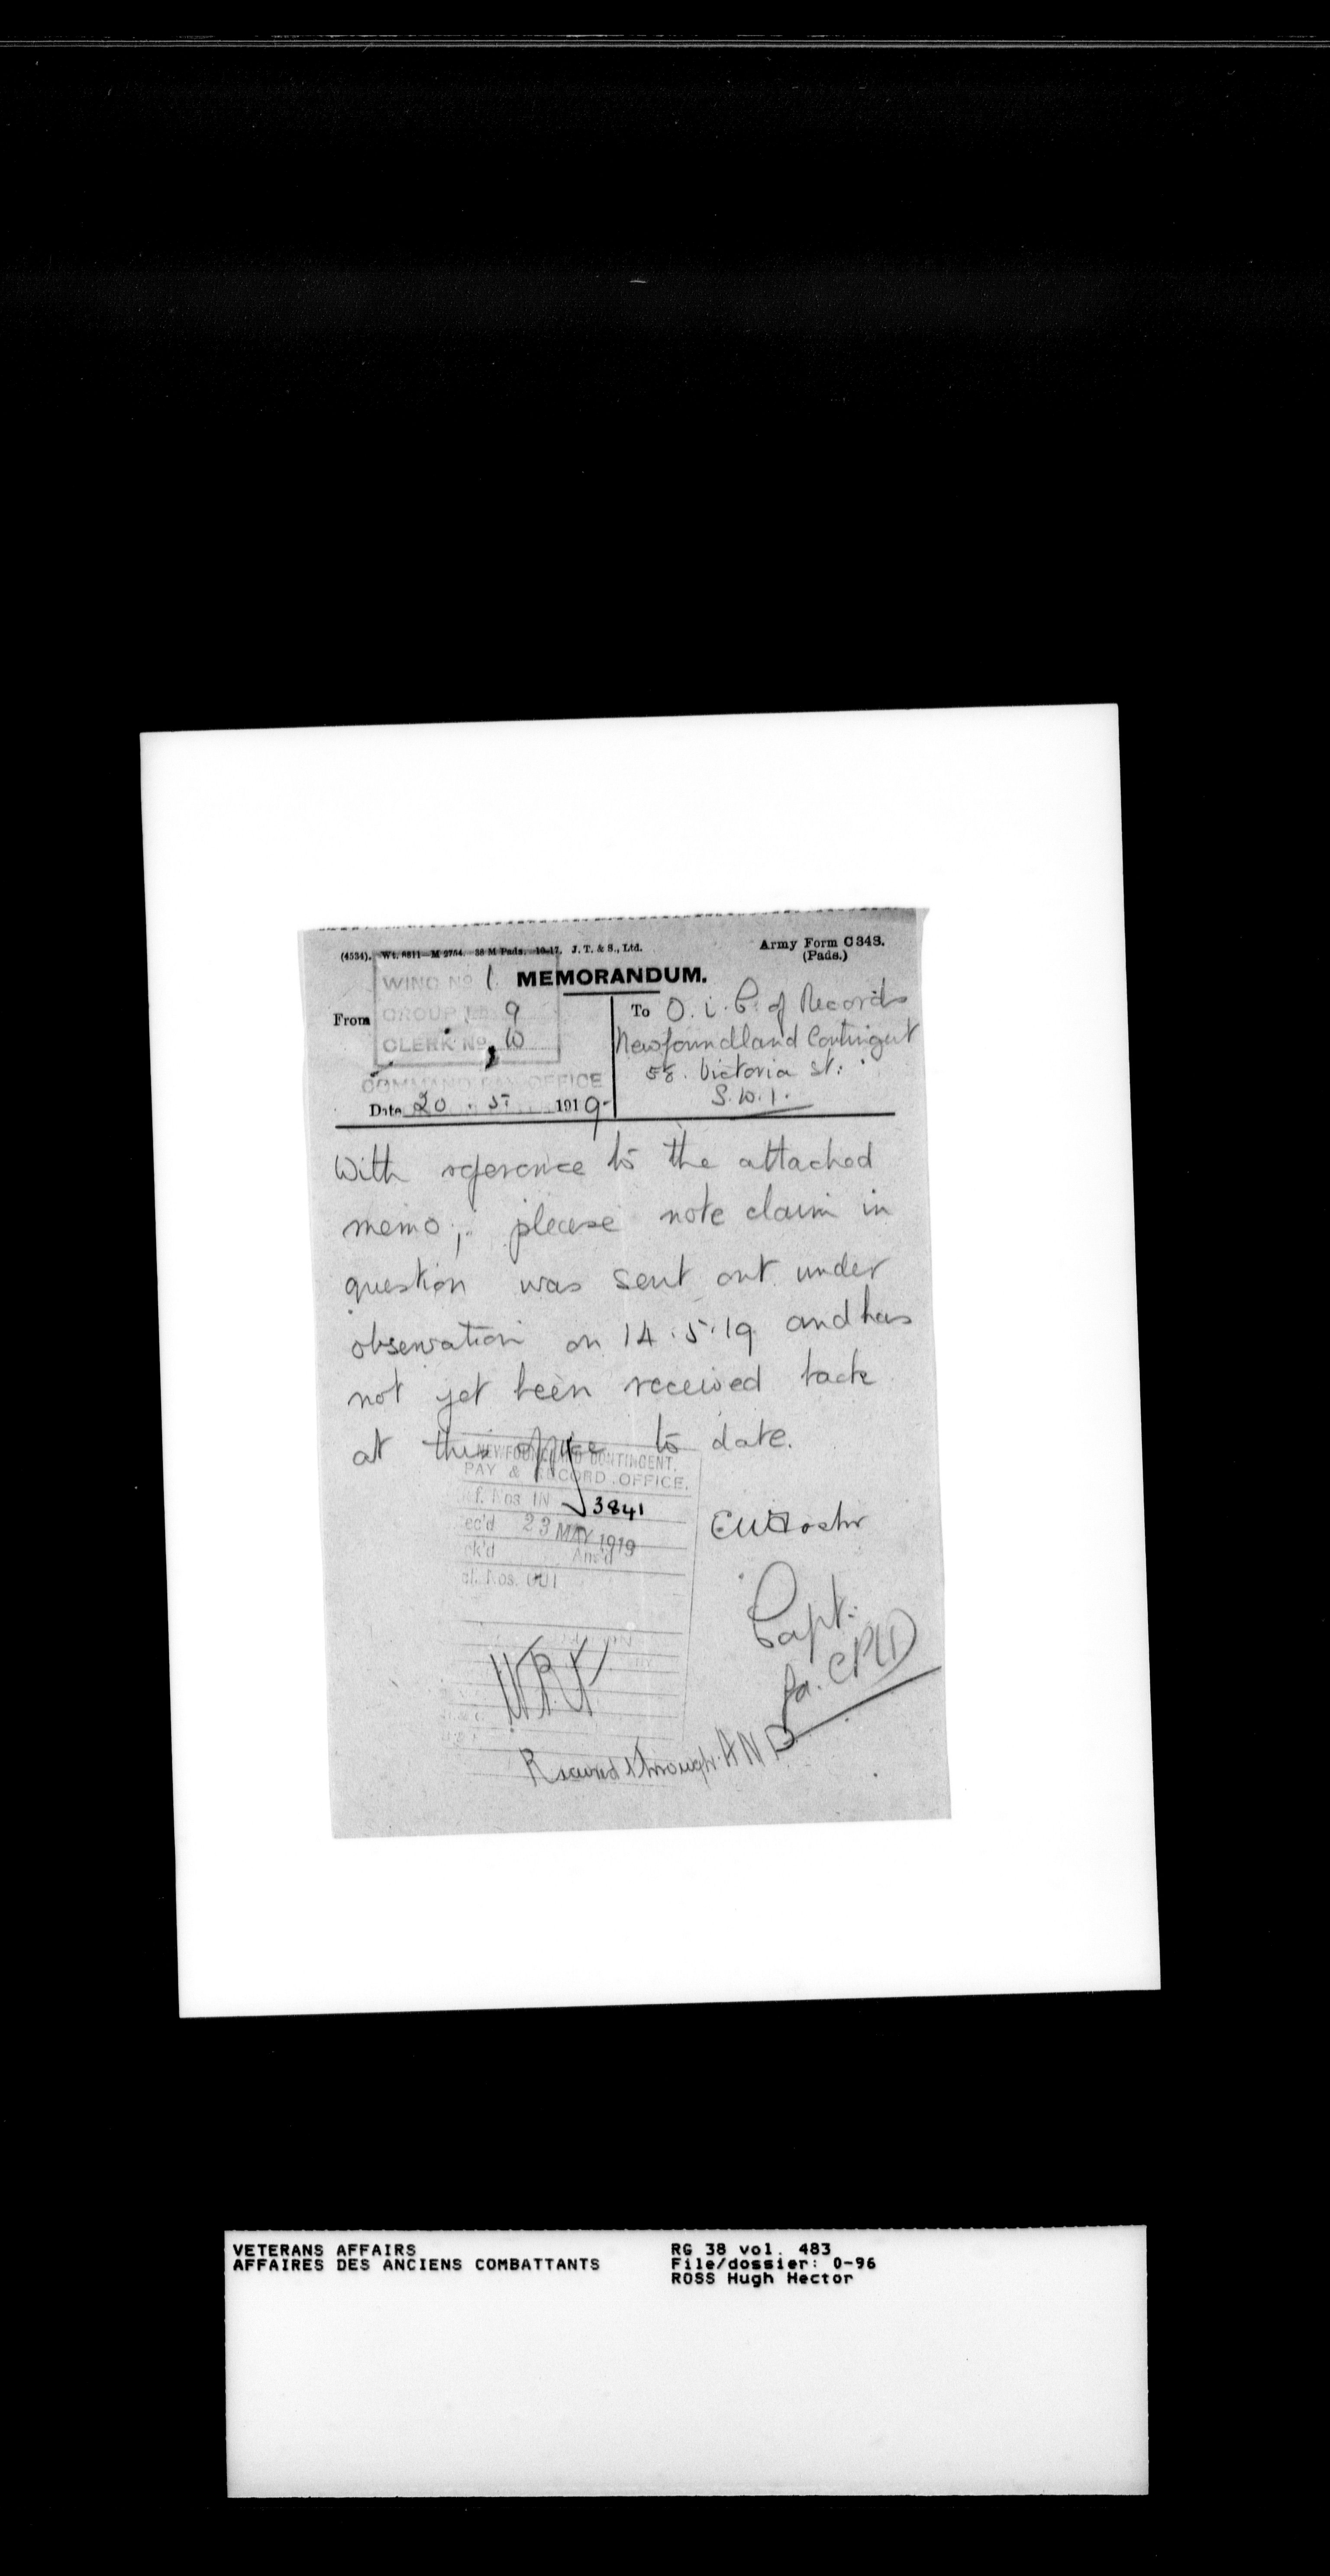 (4534). Wt. 8811—M 2754. 38 M Pads. 10-17. J. T. & S., Ltd.
Army Form C 343.
(Pads.)
MEMORANDUM.
WING No 1
GROUP 9
CLERK No 10
COMMAND PAY OFFICE
From
Date 20.5. 1919
To O. i. C. of Records
Newfoundland Contingent
58. Victoria St:
S.W.1.
With reference to the attached
memo; please note claim in
question was sent out under
observation on 14.5.19 and has
not yet been received back
at this office to date.
NEWFOUNDLAND CONTINGENT.
PAY & RECORD OFFICE.
ef. Nos IN 3841
ec'd 23 MAY 1919
rk'd Ans'd
Nos. OUT
Capt.
for CPM
Received through AND
VETERANS AFFAIRS
AFFAIRES DES ANCIENS COMBATTANTS
RG 38 vol. 483
File/dossier: 0-96
ROSS Hugh Hector